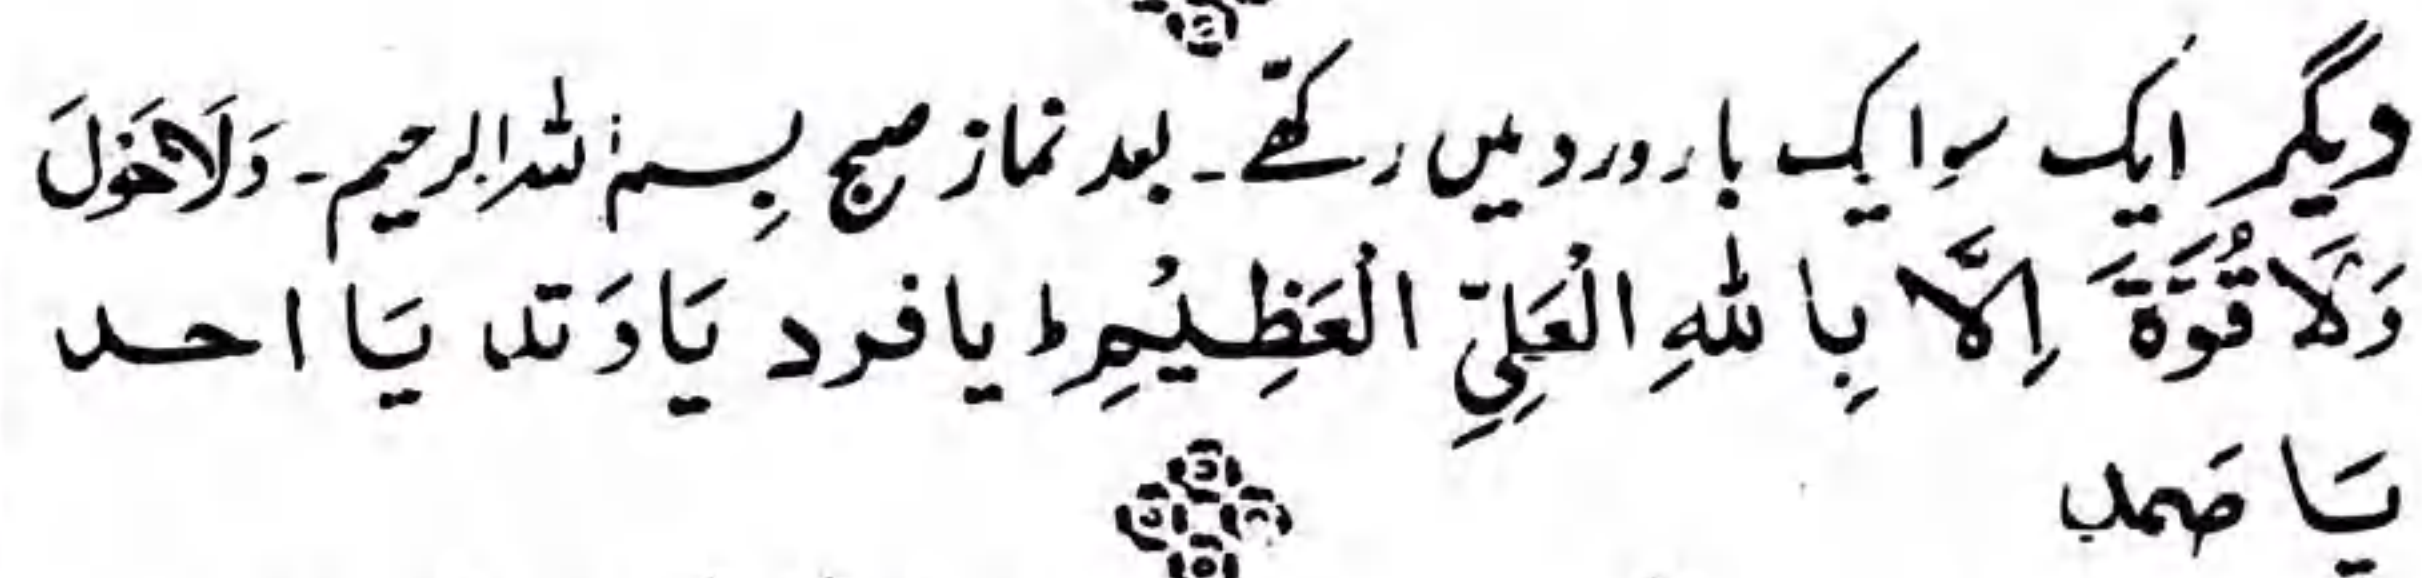 دیگر ایک سو ایک بار ورد میں رکھے۔ بعد نماز صبح بِسم اللہ الرحیم۔ وَلَا حَوْلَ
وَلَا قُوَّةَ اِلَّا بِاللهِ الْعَلِيِّ الْعَظِيْمِ ط یا فرد یَا وَتد یَا احد
یَا صَمد